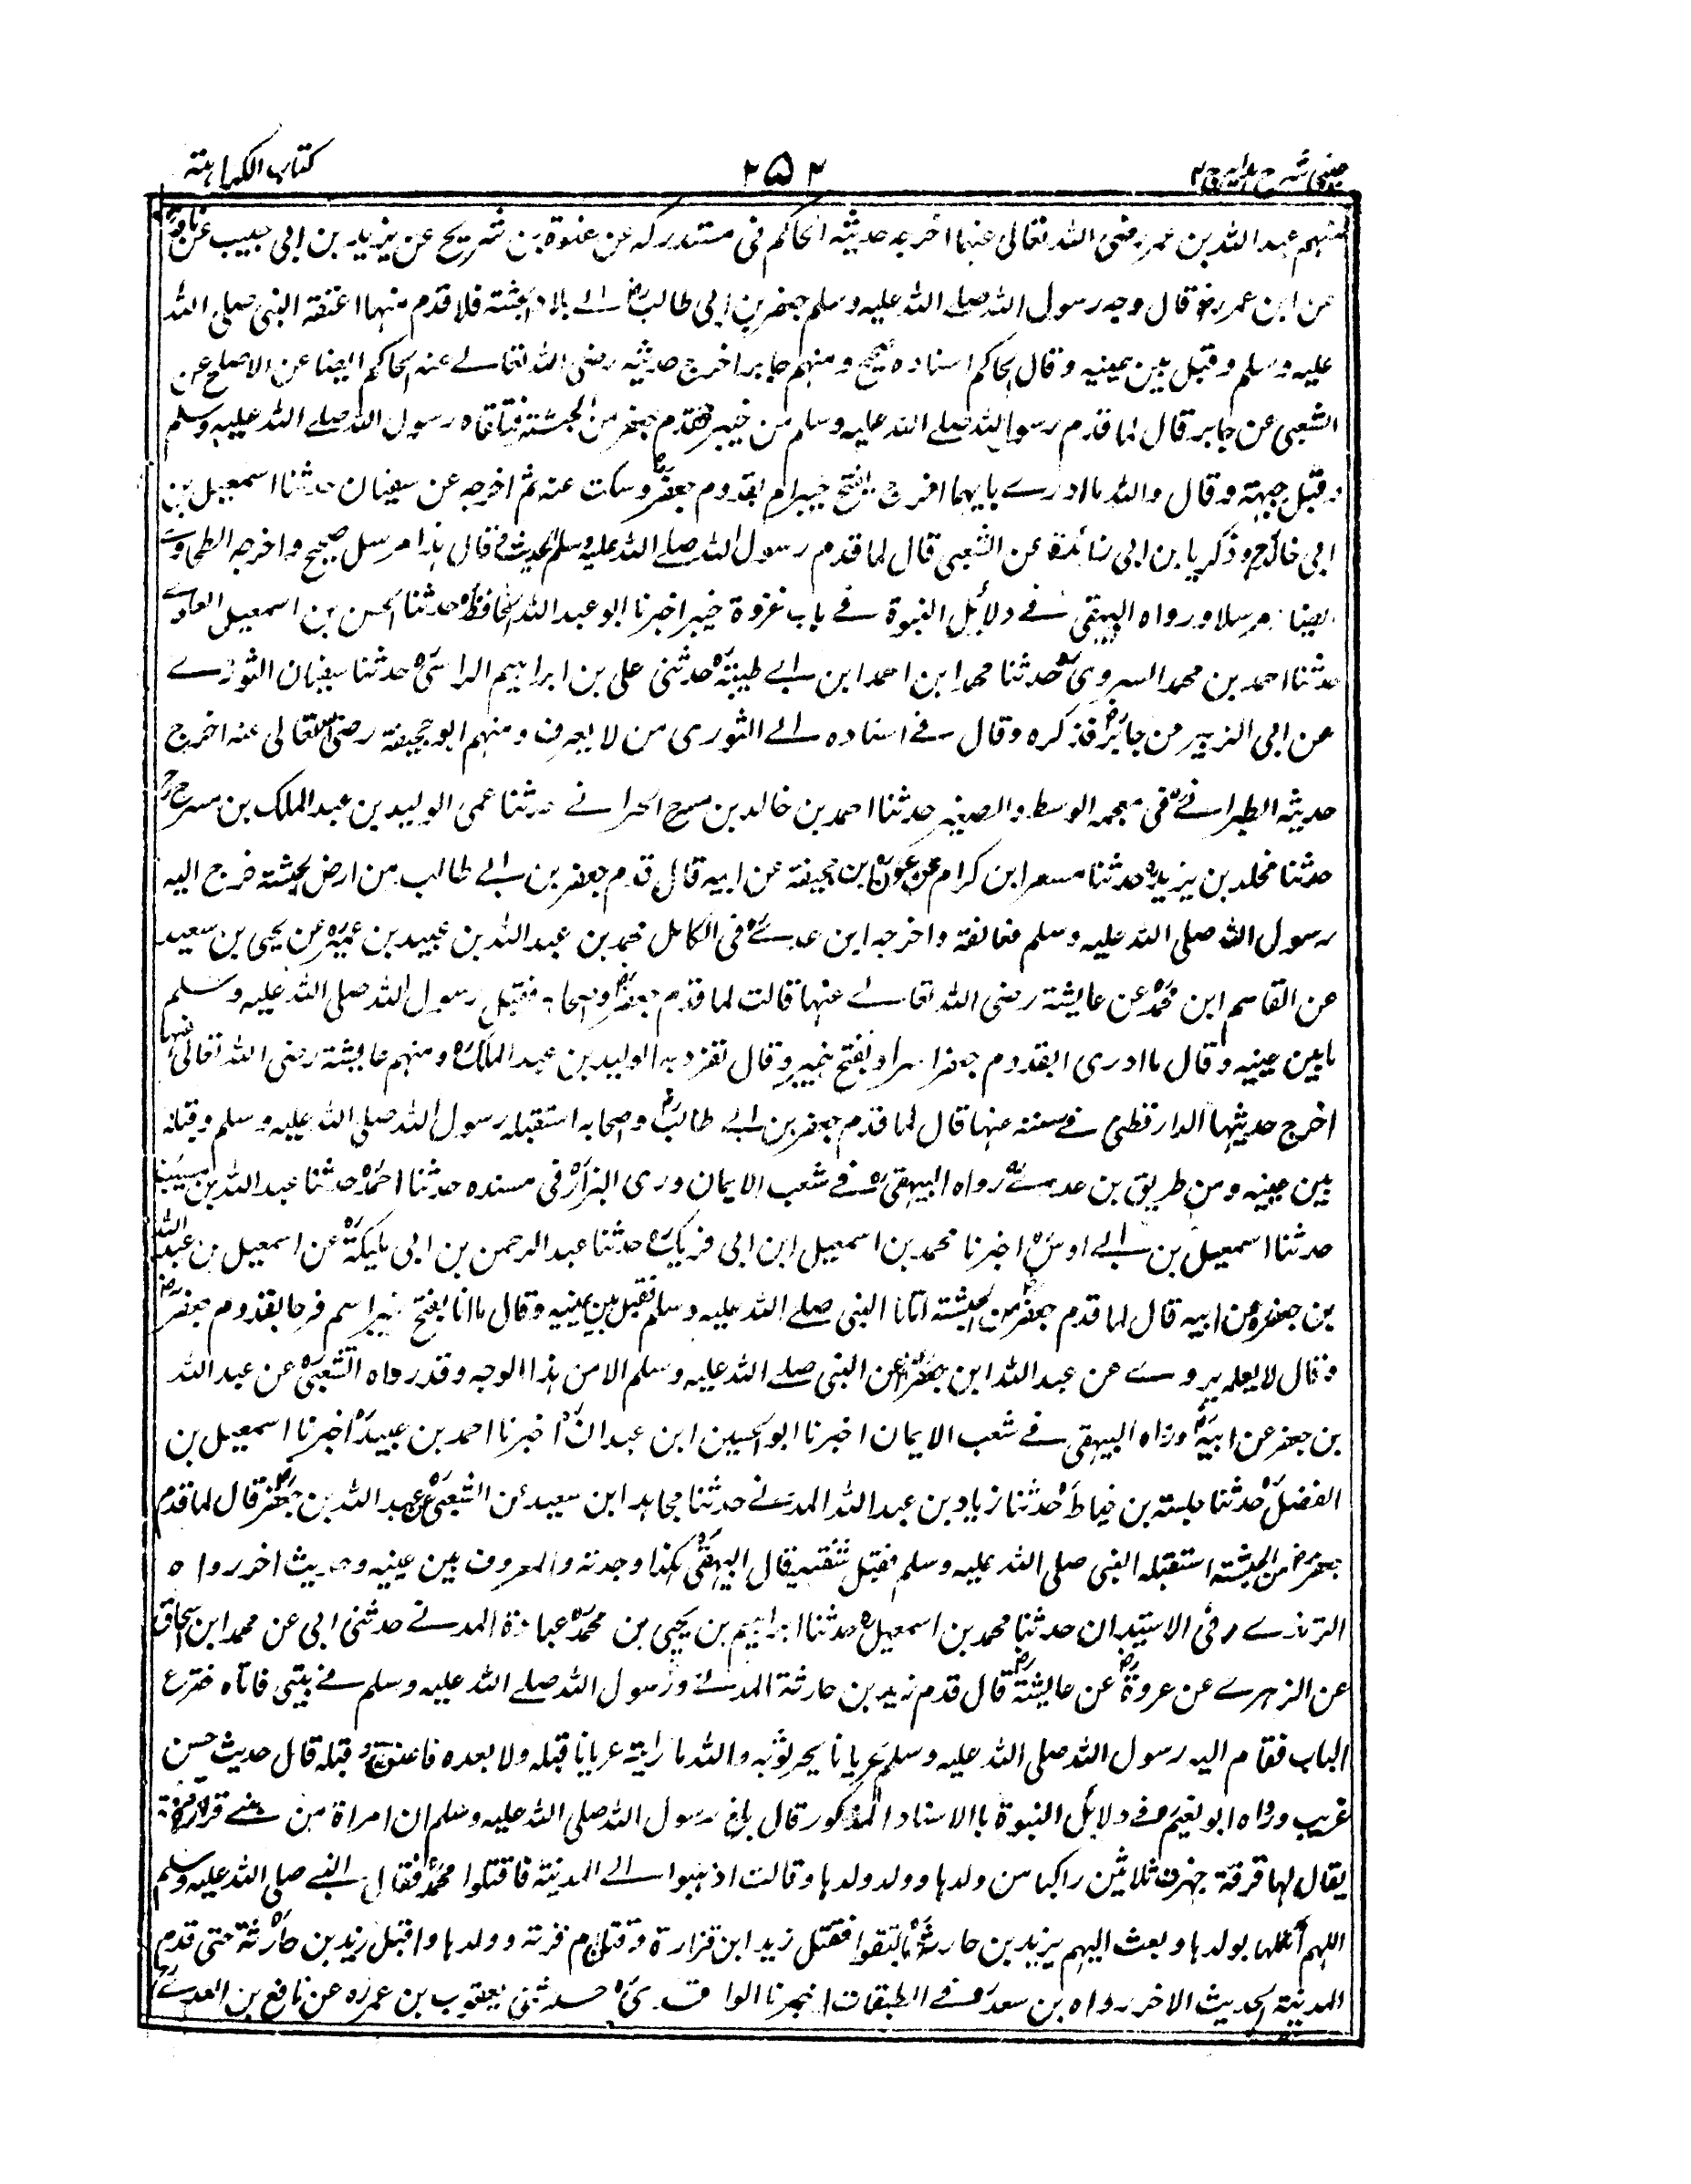 عینی شرح ہدایہ ج ۴
۲۵۲
کتاب الکراہتہ
منہم عبد اللہ بن عمر رضی اللہ تعالی عنہما اخرجہ حدیثہ الحاکم فی مستدرکہ عن غنوۃ بن شریح عن یزید بن ابی حبیب عن نافع
عن ابن عمر رضو قال وجہ رسول اللہ صلے اللہ علیہ وسلم جعفر بن ابی طالب رض الے بلاد الحبشتہ فلما قدم منہا اعتنقہ النبی صلی اللہ
علیہ وسلم وقبل بین عینیہ وقال الحاکم اسنادہ صحیح ومنہم جابر اخرج حدیثہ رضی اللہ تعالے عنہ الحاکم ایضا عن الاصلح عن
الشعبی عن جابر قال لما قدم رسول اللہ صلے اللہ علیہ وسلم من خیبر فقدم جعفر من الحبشتہ فتلقاہ رسول اللہ صلے اللہ علیہ وسلم
وقبل جبہتہ وقال واللہ ماادرے بایہما افرح بفتح خیبر ام بقدوم جعفر رض وسکت عنہ ثم اخرجہ عن سفیان حدثنا اسمعیل بن
ابی خالد وذکریا بن ابی زائدۃ عن الشعبی قال لما قدم رسول اللہ صلے اللہ علیہ وسلم الحدیث قال ہذا مرسل صحیح واخرجہ الطحاوے
ایضا مرسلا ورواہ البیہقی فے دلائل النبوۃ فے باب غزوۃ خیبر اخبرنا ابو عبد اللہ الحافظ حدثنا الحسن بن اسمعیل العلوے
حدثنا احمد بن محمد السروی حدثنا محمد ابن احمد ابن ابے طیبۃ حدثنی علی بن ابراہیم الراسی حدثنا سفیان الثورے
عن ابی الزبیر من جابر رض فذکرہ وقال فے اسنادہ الے الثوری من لا یعرف ومنہم ابو جحیفۃ رضی اللہ تعالی عنہ اخرج
حدیثہ الطبرانے فی معجمہ الوسط والصغیر حدثنا احمد بن خالد بن مسرح الحرانے حدثنا عمی الولید بن عبد الملک بن مسرح
حدثنا مخلد بن یزید حدثنا مسعر ابن کرام عن عون ابن جحیفۃ عن ابیہ قال قدم جعفر بن ابے طالب من ارض الحبشتہ فخرج الیہ
رسول اللہ صلی اللہ علیہ وسلم فعانقہ واخرجہ ابن عدے فی الکامل محمد بن عبد اللہ بن عبید بن عمیر عن یحیی بن سعید
عن القاسم ابن محمد عن عایشۃ رضی اللہ تعالے عنہا قالت لما قدم جعفر واصحابہ فقبل رسول اللہ صلی اللہ علیہ وسلم
مابین عینیہ وقال ماادری ابقدوم جعفر اسر او بفتح خیبر وقال تفرد بہ الولید بن عبد الملک ومنہم عایشۃ رضی اللہ تعالی عنہا
اخرج حدیثہا الدارقطنی فے سننہ عنہا قال لما قدم جعفر بن ابے طالب رض واصحابہ استقبلہ رسول اللہ صلی اللہ علیہ وسلم وقبلہ
بین عینیہ ومن طریق بن عدے رواہ البیہقی فے شعب الایمان وری البزار فی مسندہ حدثنا احمد حدثنا عبد اللہ بن شبیب
حدثنا اسمعیل بن ابے اوس اخبرنا محمد بن اسمعیل ابن ابی فدیک حدثنا عبد الرحمن بن ابی ملیکۃ عن اسمعیل بن عبد اللہ
بن جعفر عن ابیہ قال لما قدم جعفر من الحبشتہ اتانا النبی صلے اللہ علیہ وسلم فقبل بین عینیہ وقال ماانا بفتح خیبر اسم فرحا بقدوم جعفر رض
وقال لا یعلم یروے عن عبد اللہ ابن جعفر عن النبی صلے اللہ علیہ وسلم الا من ہذا الوجہ وقد رواہ الشعبی عن عبد اللہ
بن جعفر عن ابیہ ورواہ البیہقی فے شعب الایمان اخبرنا ابو الحسین ابن عبدان اخبرنا احمد بن عبید اخبرنا اسمعیل بن
الفضل حدثنا بن خیاط حدثنا زیاد بن عبد اللہ المدنے حدثنا مجاہد ابن سعید عن الشعبی عن عبد اللہ بن جعفر قال لما قدم
جعفر من الحبشتہ استقبلہ النبی صلی اللہ علیہ وسلم فقبل شفتیہ قال البیہقی ہکذا وجدتہ والمعروف بین عینیہ وحدیث اخر رواہ
الترمذے فی الاستیدان حدثنا محمد بن اسمعیل حدثنا ابراہیم بن یحیی بن محمد عبادۃ المدنے حدثنی ابی عن محمد ابن اسحاق
عن الزہرے عن عروۃ رض عن عایشۃ رض قال قدم زید بن حارثۃ المدنے ورسول اللہ صلے اللہ علیہ وسلم فے بیتی فاتاہ فقرع
الباب فقام الیہ رسول اللہ صلی اللہ علیہ وسلم عریانا یجر ثوبہ واللہ ما رایتہ عریانا قبلہ ولا بعدہ فاعتنقہ وقبلہ قال حدیث حسن
غریب ورواہ ابو نعیم فے دلائل النبوۃ باالاسناد المذکور قال بلغ رسول اللہ صلی اللہ علیہ وسلم ان امراۃ من بنے
یقال لہا قرفۃ جہزت ثلاثین راکبا من ولدہا وولد ولدہا وقالت اذہبوا الے المدینۃ فاقتلوا محمد فقال النبے صلی اللہ علیہ وسلم
اللہم اثکلہا بولدہا وبعث الیہم یزید بن حارثۃ فالتقوا فقتل زید ابن فزارۃ وقتل ام قرفۃ وولدہا واقبل زید بن حارثۃ حتی قدم
المدینۃ والحدیث الاخر رواہ بن سعد فے الطبقات اخبرنا الواقدی حدثنی یعقوب بن عمر عن نافع بن العدے